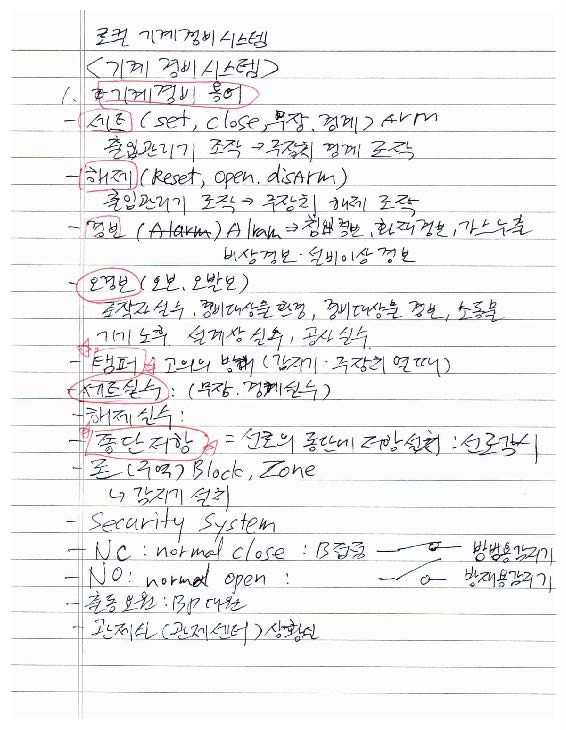 로컬 기계경비시스템
<기계 경비시스템>
1. 기계경비 용어
- 세트 (set, close, 무장. 경계) Arm
출입관리기 조작 → 주장치 경계 조작
- 해제 (Reset, open. disArm)
출입관리기 조작 → 주장치 해제 조작
- 경보 (Alarm) Alram → 침입경보, 화재경보, 가스누출
비상경보 · 설비이상 경보
- 오경보 (오보, 오발보)
조작자실수, 경비대상물 환경, 경비대상물 경보, 소동물
기기 노후 설계상 실수, 공사실수
- 탬퍼 고의의 방해 (감지기 · 주장치 열때)
- 세트실수 : (무장. 경계실수)
- 해제실수 :
- 종단저항 = 선로의 종단에 저항설치 : 선로감시
- 존 (구역) Block, Zone
↳ 감지기 설치
- Security System
- NC : normal close : B접점 방범용감지기
- NO : normal open : 방재용감지기
- 출동요원 : BP대원
- 관제사 (관제센터) 상황실